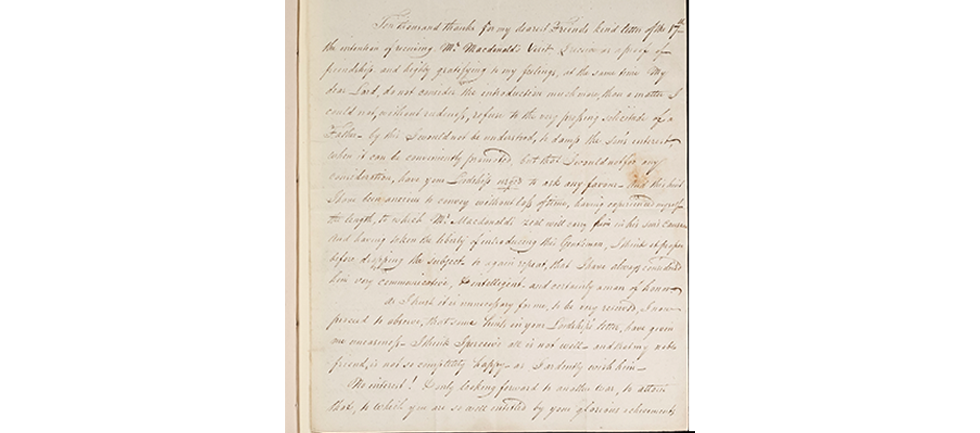 Ten thousand thanks for my dearest Friends kind letter of the 17th
the intention of receiving Mr. Macdonald's Visit I receive as a proof of
friendship, and highly gratifying to my feelings, at the same time My
dear Lord, do not consider the introduction much more, than a matter I
could not, without rudeness, refuse to the very pressing solicitude of a
Father - by this I would not be understood, to damp the Son's interest,
when it can be conveniently promoted, but that I would not for any
consideration, have your Lordship urged to ask any favour - And this hint
I have been anxious to convey without loss of time, having experienced myself
the length, to which Mr. Macdonald's zeal will carry him in his son's cause -
And having taken the liberty of introducing this Gentleman, I think it proper
before dropping the subject - to again repeat, that I have always considered
him very communicative, & intelligent - and certainly a man of honor -
As I trust it is unnecessary for me, to be very reserved, I now
proceed to observe, that some hints in your Lordship's letter, have given
me uneasiness - I think I perceive all is not well - and that my noble
friend, is not so completely happy - as I ardently wish him -
No interest! only looking forward to another war, to attain
that, to which you are so well entitled by your glorious achievements